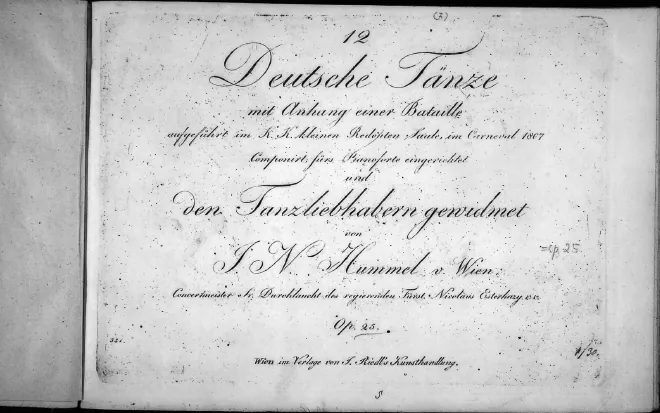 (3)
12
Deutsche Tänze
mit Anhang einer Bataille
aufgeführt im K. K. kleinen Redouten Saale, im Carneval 1807
Componirt, fürs Pianoforte eingerichtet
und
den Tanzliebhabern gewidmet
von
J. N. Hummel v. Wien.
=op. 25
Concertmeister Sr. Durchlaucht des regierenden Fürst. Nicolaus Esterhazy.
Op. 25.
331.
1/30.
Wien im Verlage von J. Riedl's Kunsthandlung.